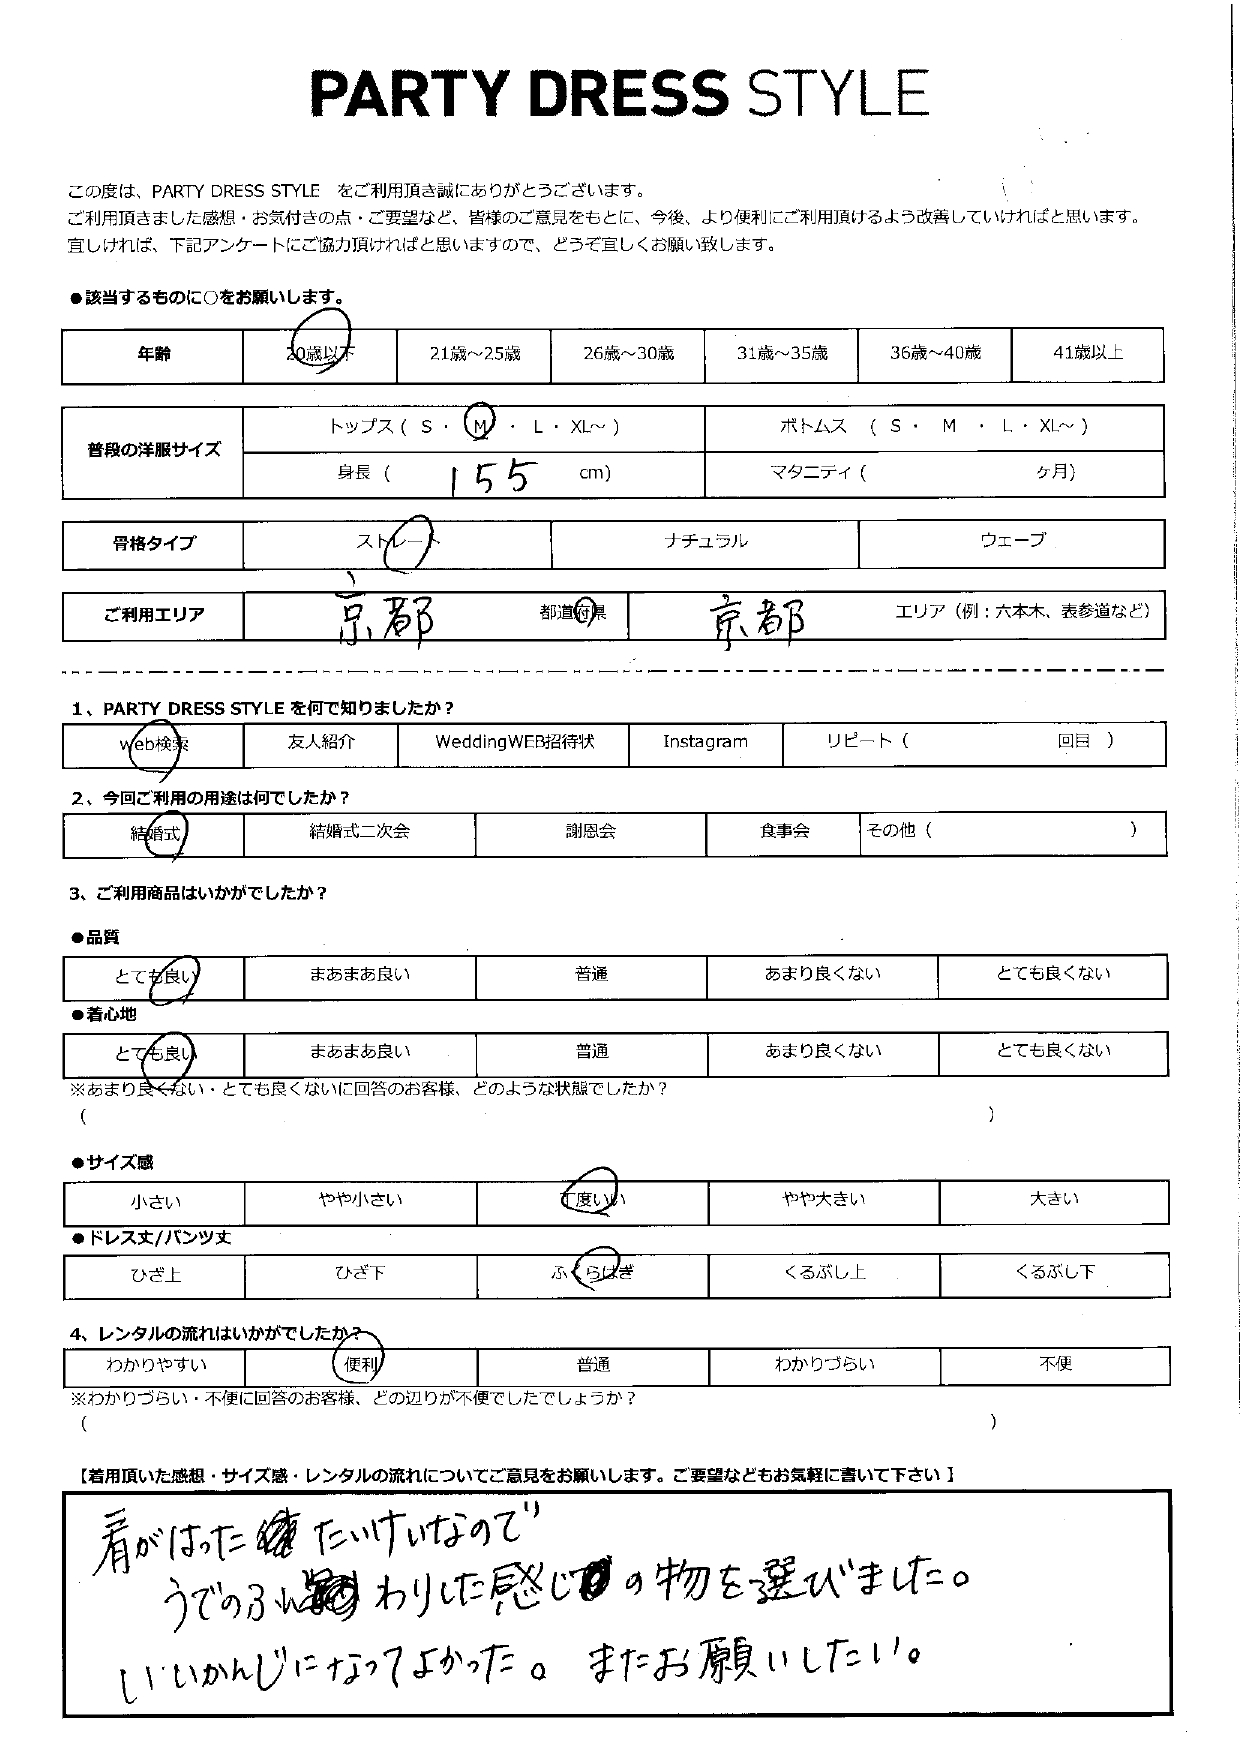 PARTY DRESS STYLE
この度は、PARTY DRESS STYLE をご利用頂き誠にありがとうございます。
ご利用頂きました感想・お気付きの点・ご要望など、皆様のご意見をもとに、今後、より便利にご利用頂けるよう改善していければと思います。
宜しければ、下記アンケートにご協力頂ければと思いますので、どうぞ宜しくお願い致します。
●該当するものに○をお願いします。
年齢 20歳以下 21歳～25歳 26歳～30歳 31歳～35歳 36歳～40歳 41歳以上
普段の洋服サイズ トップス ( S ・ M ・ L ・ XL～ ) ボトムス ( S ・ M ・ L ・ XL～ )
身長 ( 155 cm) マタニティ ( ヶ月)
骨格タイプ ストレート ナチュラル ウェーブ
ご利用エリア 京都 都道府県 京都 エリア（例：六本木、表参道など）
1、PARTY DRESS STYLE を何で知りましたか？
web検索 友人紹介 WeddingWEB招待状 Instagram リピート ( 回目 )
2、今回ご利用の用途は何でしたか？
結婚式 結婚式二次会 謝恩会 食事会 その他 ( )
3、ご利用商品はいかがでしたか？
●品質
とても良い まあまあ良い 普通 あまり良くない とても良くない
●着心地
とても良い まあまあ良い 普通 あまり良くない とても良くない
※あまり良くない・とても良くないに回答のお客様、どのような状態でしたか？
( )
●サイズ感
小さい やや小さい 丁度いい やや大きい 大きい
●ドレス丈/パンツ丈
ひざ上 ひざ下 ふくらはぎ くるぶし上 くるぶし下
4、レンタルの流れはいかがでしたか？
わかりやすい 便利 普通 わかりづらい 不便
※わかりづらい・不便に回答のお客様、どの辺りが不便でしたでしょうか？
( )
【着用頂いた感想・サイズ感・レンタルの流れについてご意見をお願いします。ご要望などもお気軽に書いて下さい 】
肩がはった たいけいなので
うでのふんわりした感じの物を選びました。
いいかんじになってよかった。またお願いしたい。